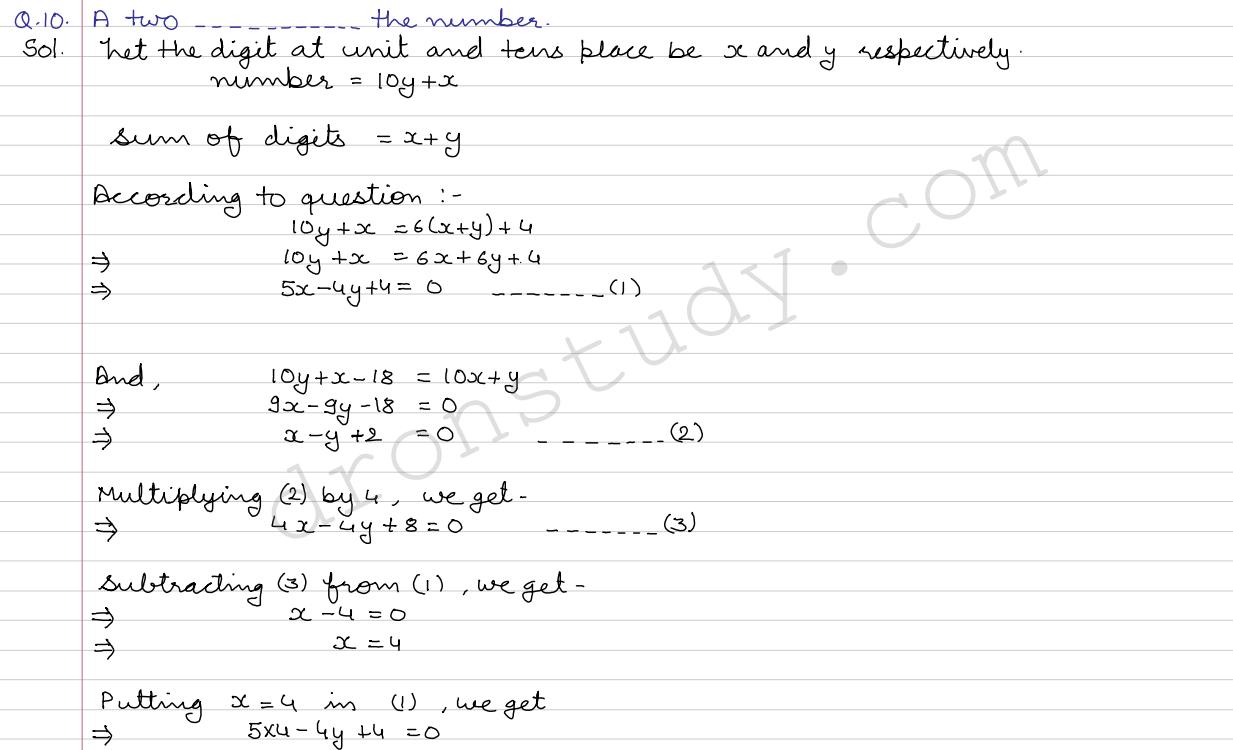 Q.10. A two ----------- the number.
Sol. Let the digit at unit and tens place be x and y respectively.
number = 10y+x
Sum of digits = x+y
According to question :-
10y+x = 6(x+y)+4
⇒ 10y+x = 6x+6y+4
⇒ 5x-4y+4= 0 ------- (1)
And, 10y+x-18 = 10x+y
⇒ 9x-9y-18 = 0
⇒ x-y+2 = 0 ------- (2)
Multiplying (2) by 4, we get-
⇒ 4x-4y+8=0 ------- (3)
Subtracting (3) from (1), we get-
⇒ x-4=0
⇒ x=4
Putting x=4 in (1), we get
⇒ 5x4-4y+4=0
dronstudy.com